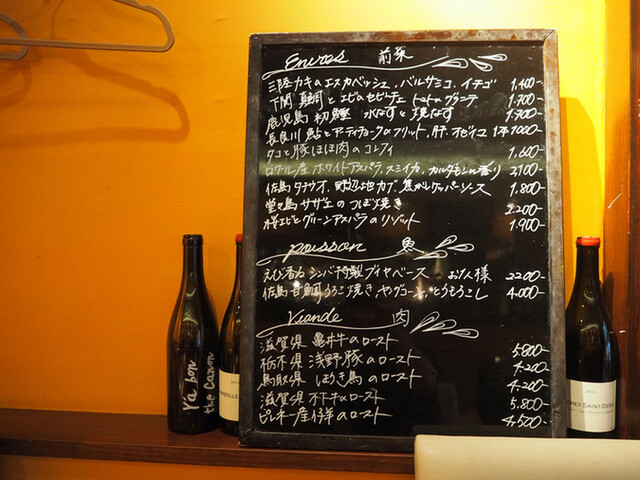 Entrées 前菜
三陸カキのエスカベッシュ、バルサミコ、イチゴ 1,400-
下関 真鯛とエビのセビーチェ トマトのグラニテ 1,700-
鹿児島 初鰹 水なすと焼なす 1,900-
長良川 鮎とアーティチョークのフリット、肝、オゼイユ 1000-
タコと豚ほほ肉のコンフィ 1,600-
ロワール産 ホワイトアスパラ、スミイカ、カルダモンの香り 2,100-
佐島 タチウオ、野辺地カブ、焦がしケッパーソース 1,800-
島 サザエのつぼ焼き 2,200-
桜エビとグリーンアスパラのリゾット 1,900-
poisson 魚
特製ブイヤベース お1人様 2200-
佐島 甘鯛うろこ焼き、ヤングコーン、とうもろこし 4,000-
Viande 肉
滋賀県 亀井牛のロースト 5,800-
栃木県 浅野豚のロースト 4,200-
鳥取県 ほうき鳥のロースト 4,200-
滋賀県 木下牛のロースト 5,800-
ピレネー産 仔羊のロースト 4,500-
Ya bon
the Canon
MOREY-SAINT-DENIS